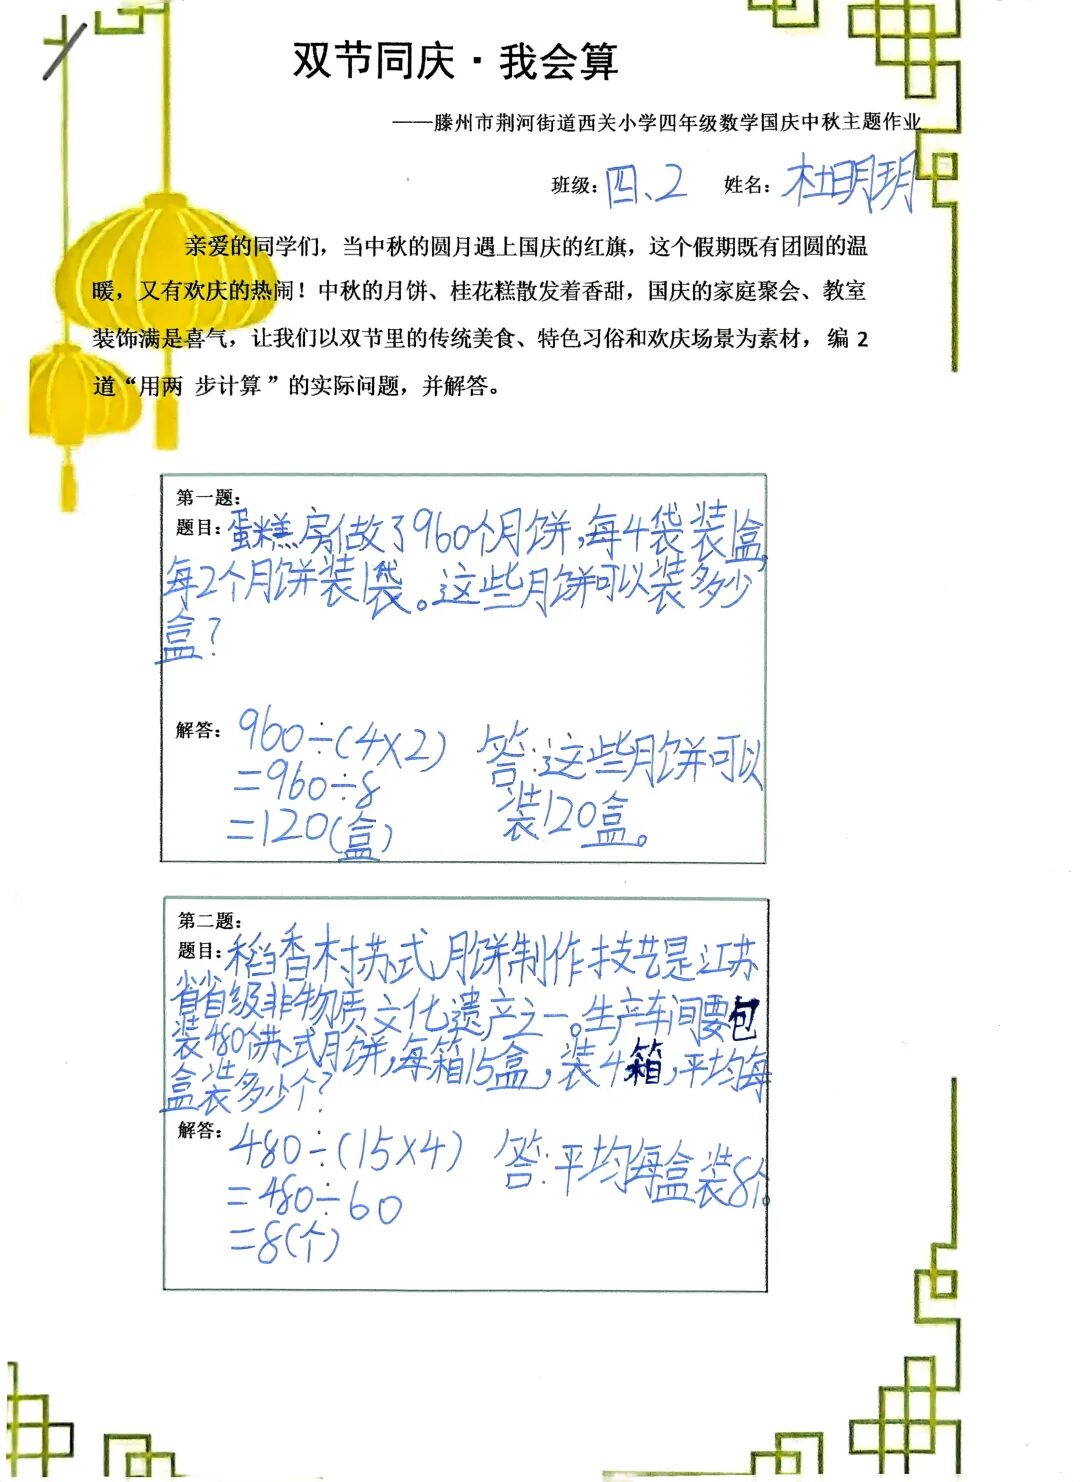 双节同庆·我会算
——滕州市荆河街道西关小学四年级数学国庆中秋主题作业
班级：四、2 姓名：杜明玥
亲爱的同学们，当中秋的圆月遇上国庆的红旗，这个假期既有团圆的温
暖，又有欢庆的热闹！中秋的月饼、桂花糕散发着香甜，国庆的家庭聚会、教室
装饰满是喜气，让我们以双节里的传统美食、特色习俗和欢庆场景为素材，编 2
道“用两 步计算”的实际问题，并解答。
第一题：
题目：蛋糕房做了960个月饼，每4袋装1盒，
每2个月饼装1袋。这些月饼可以装多少
盒？
解答：960÷(4×2) 答：这些月饼可以
=960÷8 装120盒。
=120(盒)
第二题：
题目：稻香村苏式月饼制作技艺是江苏
省省级非物质文化遗产之一。生产车间要包
装480个苏式月饼，每箱15盒，装4箱，平均每
盒装多少个？
解答：480÷(15×4) 答：平均每盒装8个。
=480÷60
=8(个)